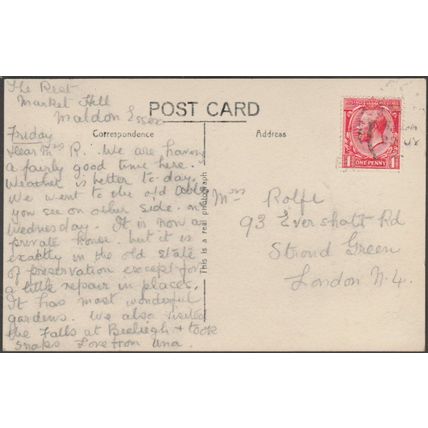 The Rest
Market Hill
Maldon Essex
POST CARD
Friday
Correspondence
Address
Dear Mrs R. We are having
a fairly good time here.
Weather is better to-day.
We went to the old Abbey
you see on other side. on
Wednesday. It is now a
private house. but it is
exactly in the old state
of preservation except for
a little repair in places.
It has most wonderful
gardens. We also visited
the Falls at Beeleigh + took
snaps Love from Una.
This is a real photograph
Mrs Rolfe
93 Evershott Rd
Stroud Green
London N.4.
ONE PENNY